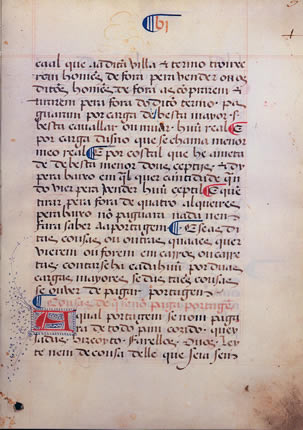 bj
caal que aa dita villa & termo trouxe
rem homẽs de fora pera vender ou os
ditos homẽs de fora as comprarem &
tirarem pera fora do dito termo. pa
guaram por carga de besta mayor. s.
besta cavallar ou muar. huũ real
por carga dasno que se chama menor
meo real por costal que he ameta
de de besta menor dous ceptijs. & dy
pera baixo em qual quer cantidade que
vier pera vender huũ ceptil E que
tirar pera fora de quatro alqueires
pera baixo nõ paguara nada nem
fara saber aa portagem E se as di
tas cousas ou outras quaaes quer
vierem ou forem em carros ou carre
tas contarse ha cada huũ por duas
cargas mayores. se das taes cousas
se ouver de pagar portagem
Cousas de que nõ paga portagẽ
A qual portagem se nom paga
ra de todo pam cozido. quey
jadas. biscoyto. farellos. ovos. ley
te nem de cousa delle que seja sem